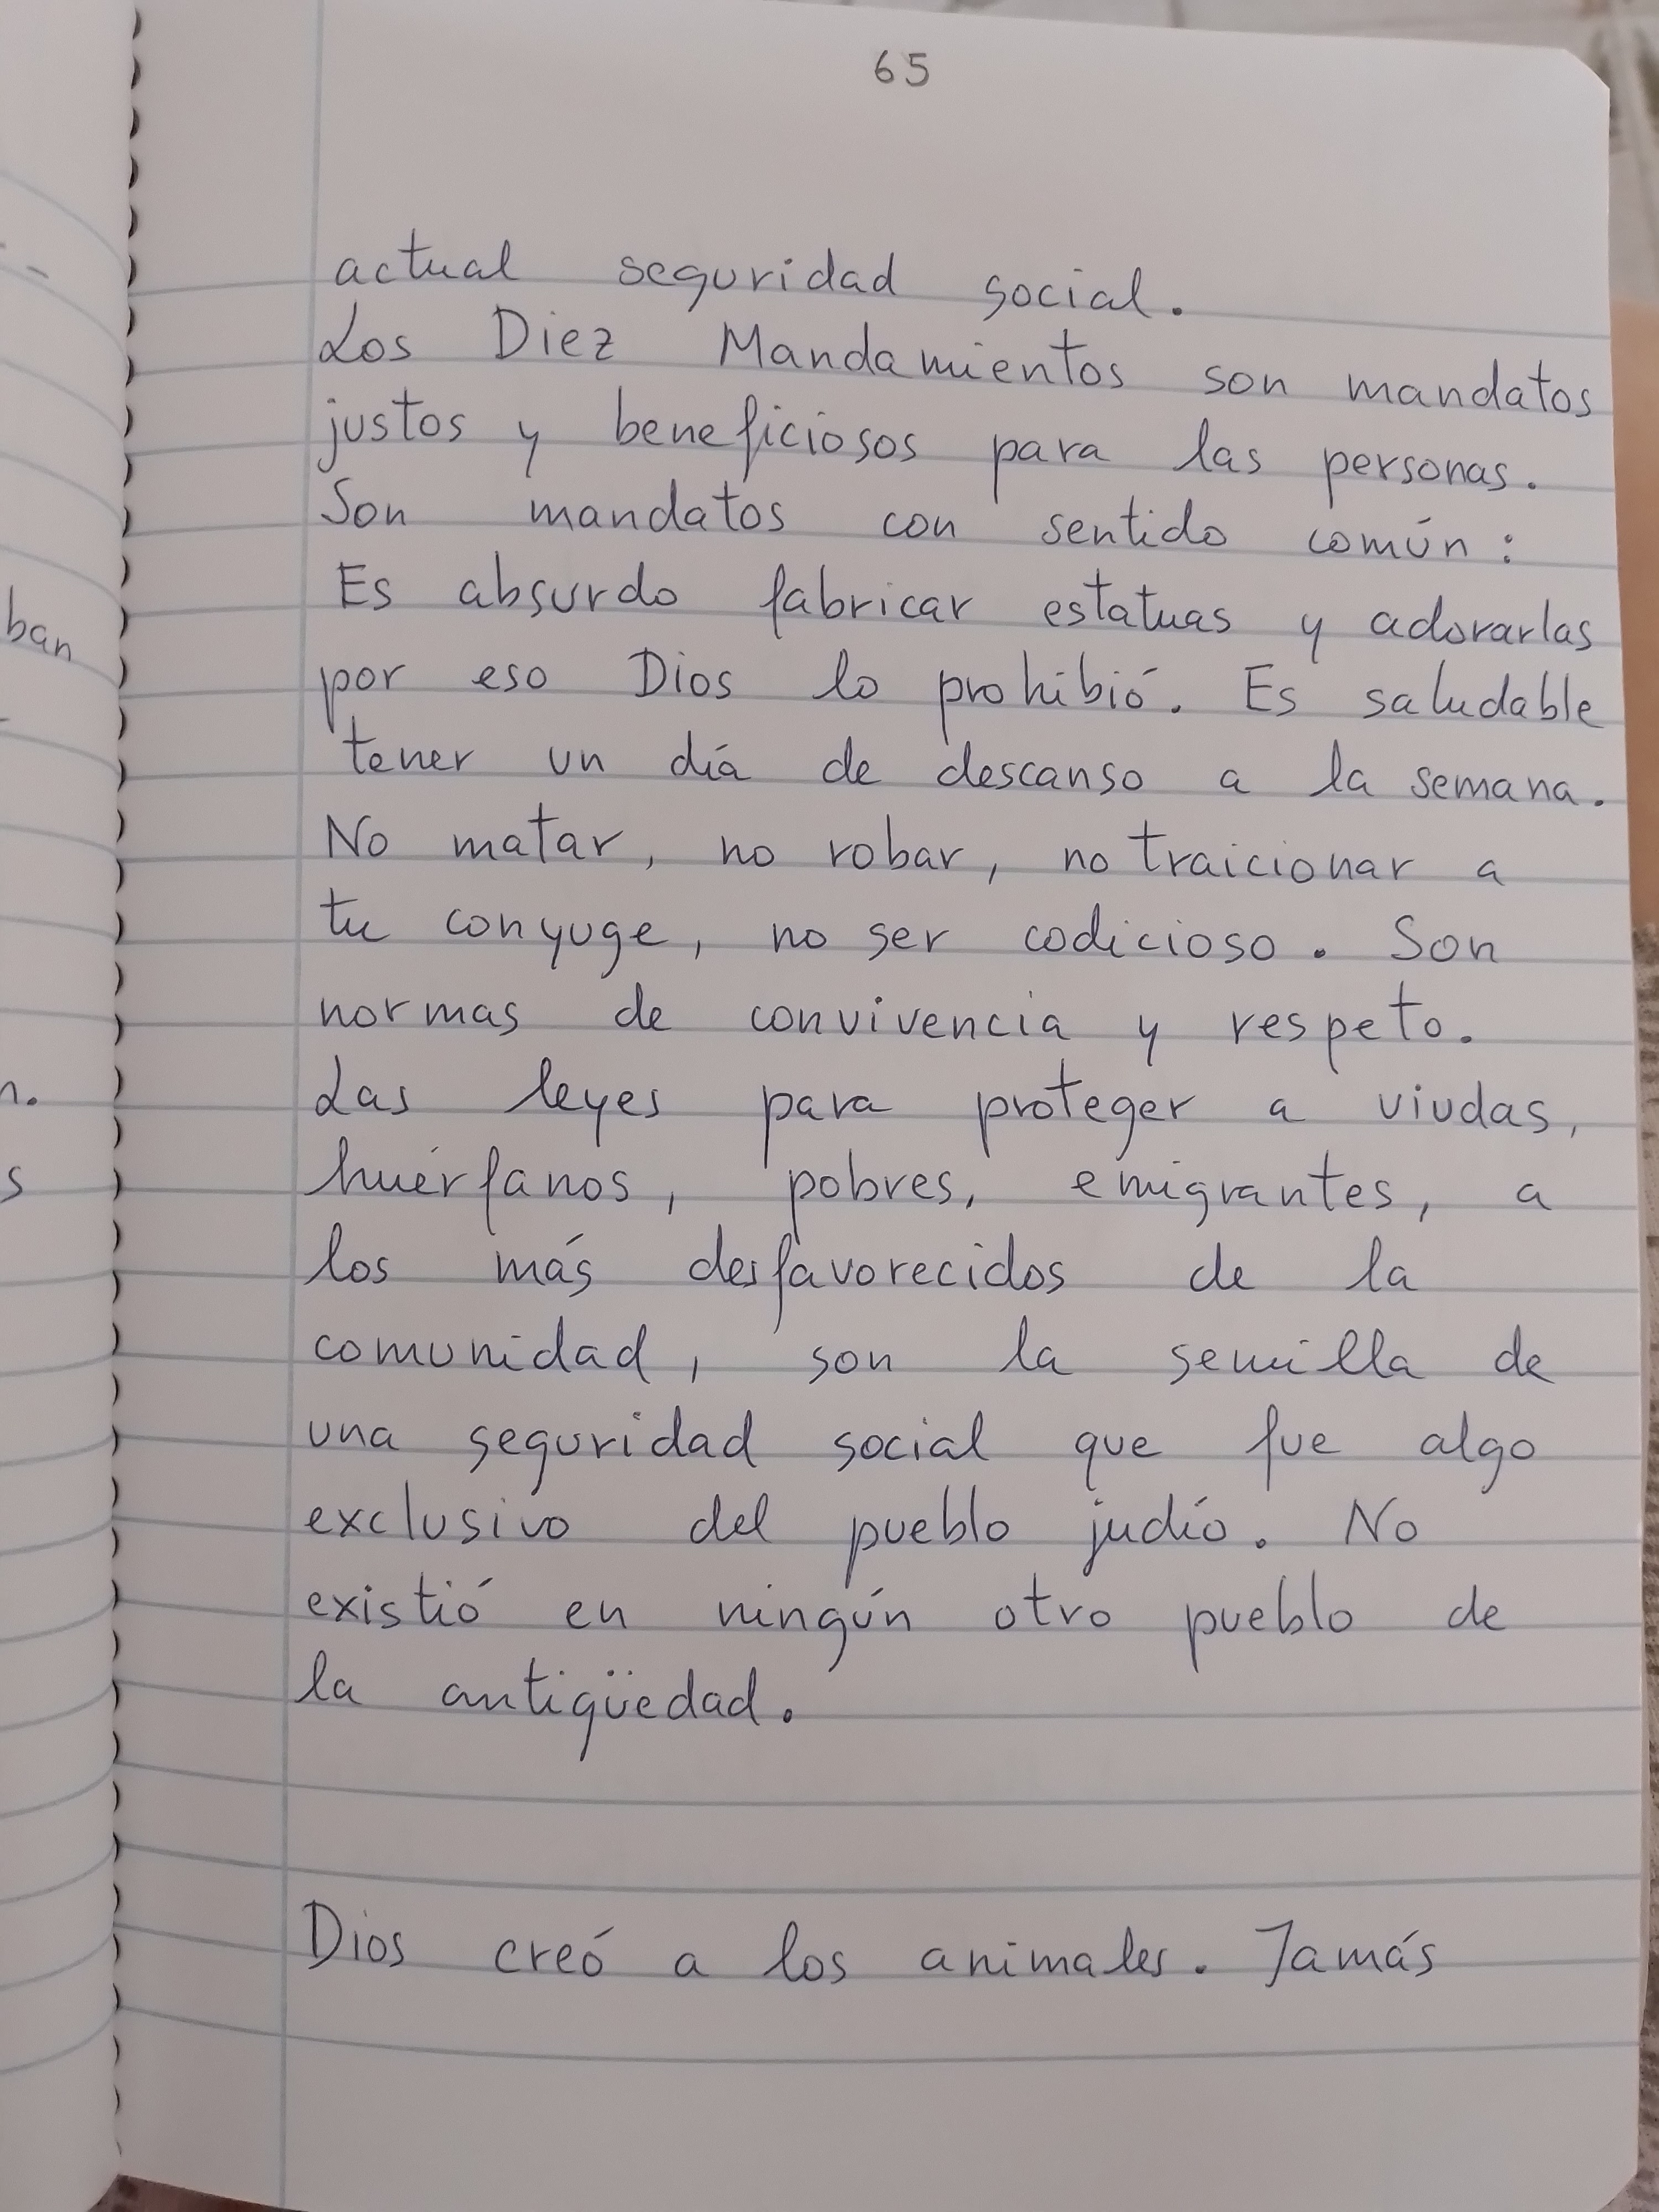 65
actual seguridad social.
Los Diez Mandamientos son mandatos
justos y beneficiosos para las personas.
Son mandatos con sentido común:
Es absurdo fabricar estatuas y adorarlas
por eso Dios lo prohibió. Es saludable
tener un día de descanso a la semana.
No matar, no robar, no traicionar a
tu conyuge, no ser codicioso. Son
normas de convivencia y respeto.
Las leyes para proteger a viudas,
huérfanos, pobres, emigrantes, a
los más desfavorecidos de la
comunidad, son la semilla de
una seguridad social que fue algo
exclusivo del pueblo judío. No
existió en ningún otro pueblo de
la antigüedad.
Dios creó a los animales. Jamás